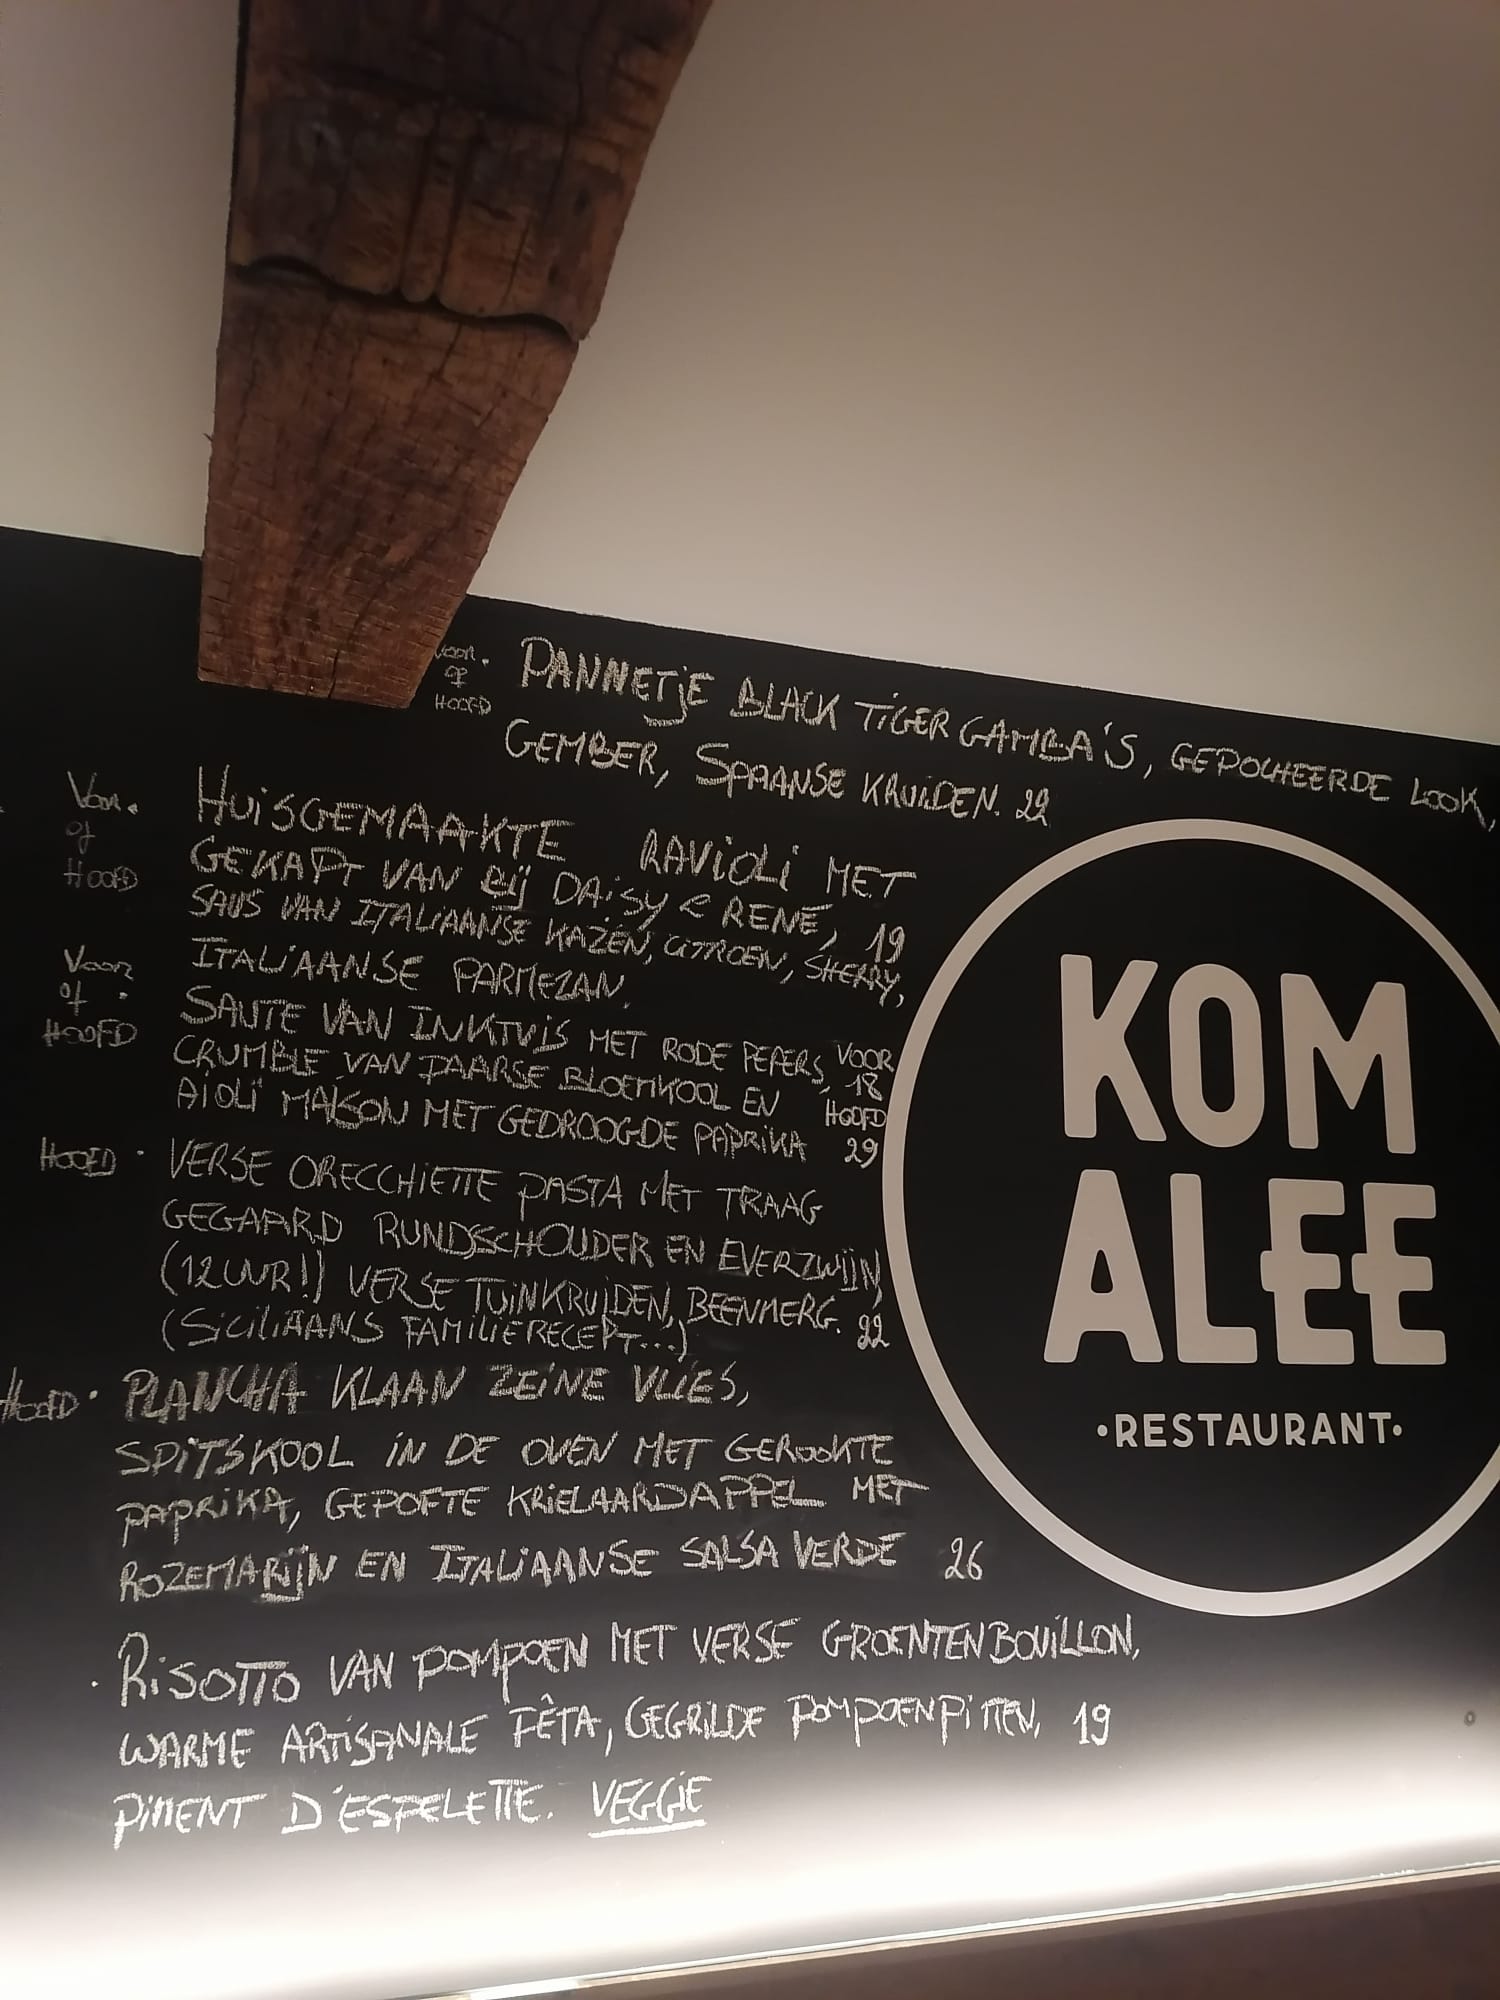 VOOR.
OF
HOOFD
PANNETJE BLACK TIGER GAMBA'S, GEPOCHEERDE LOOK,
GEMBER, SPAANSE KRUIDEN. 22
VOOR.
of
HOOFD
HUISGEMAAKTE RAVIOLI MET
GEKAPT VAN BIJ DAISY & RENÉ, 19
SAUS VAN ITALIAANSE KAZEN, CITROEN, SHERRY,
ITALIAANSE PARMEZAN.
VOOR
of
HOOFD
SAUTÉ VAN INKTVIS MET RODE PEPERS, VOOR
CRUMBLE VAN PAARSE BLOEMKOOL EN 18
AIOLI MAISON MET GEDROOGDE PAPRIKA HOOFD
29
HOOFD · VERSE ORECCHIETTE PASTA MET TRAAG
GEGAARD RUNDSCHOUDER EN EVERZWIJN,
(12 UUR!) VERSE TUINKRUIDEN, BEENMERG. 22
(SICILIAANS FAMILIERECEPT...)
HOOFD · PLANCHA KLAAN ZEINE VLIES,
SPITSKOOL IN DE OVEN MET GEROOKTE
PAPRIKA, GEPOFTE KRIELAARDAPPEL MET
ROZEMARIJN EN ITALIAANSE SALSA VERDE 26
· RISOTTO VAN POMPOEN MET VERSE GROENTENBOUILLON,
WARME ARTISANALE FÊTA, GEGRILDE POMPOENPITTEN, 19
PIMENT D'ESPELETTE. VEGGIE
KOM
ALEE
·RESTAURANT·